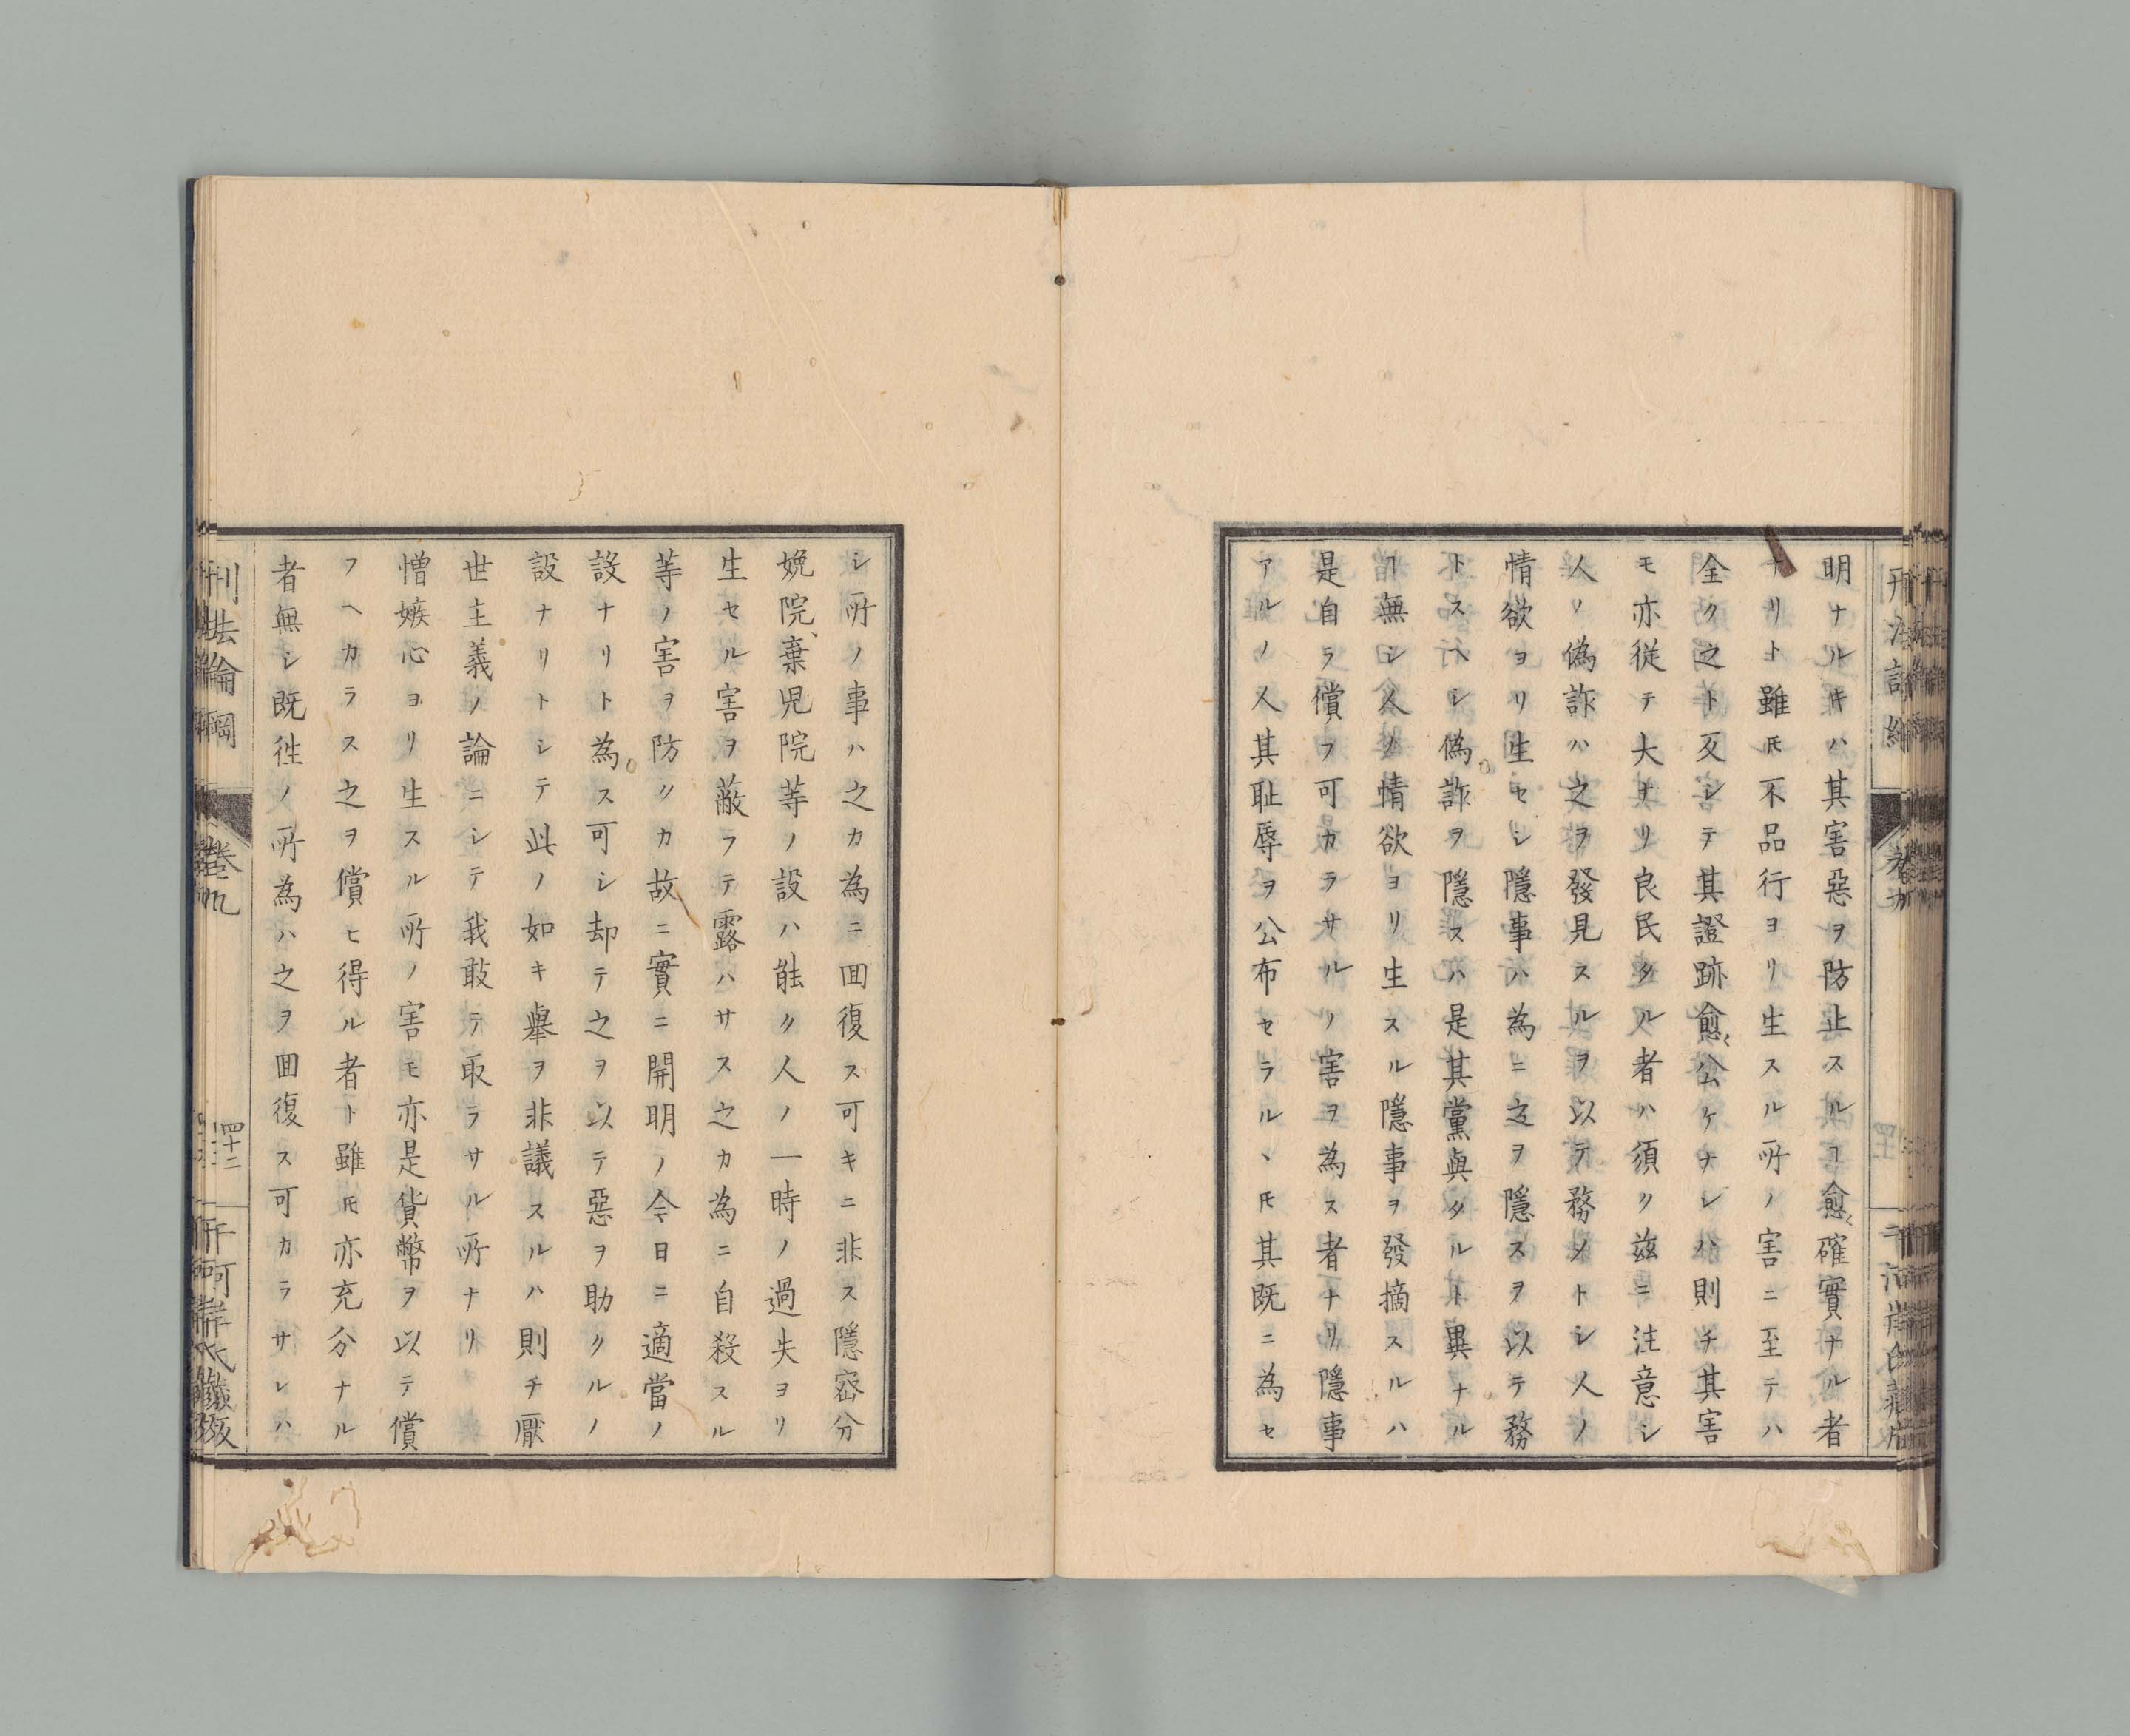 明ナルキハ其害惡ヲ防止スルヿ愈〻確實ナル者
ナリト雖𪜈不品行ヨリ生スル所ノ害ニ至テハ
全ク之ト反シテ其證跡愈〻公ケナレハ則チ其害
モ亦従テ大ナリ良民タル者ハ須ク茲ニ注意シ
人ノ偽詐ハ之ヲ發見スルヲ以テ務メトシ人ノ
情欲ヨリ生セシ隱事ハ為ニ之ヲ隱スヲ以テ務
トスヘシ偽詐ヲ隱スハ是其黨與タルト異ナル
ヿ無シ人ノ情欲ヨリ生スル隱事ヲ發摘スルハ
是自ラ償フ可カラサルノ害ヲ為ス者ナリ隱事
アルノ人其耻辱ヲ公布セラルヽ𪜈其既ニ為セ
シ所ノ事ハ之カ為ニ囬復ス可キニ非ス隱密分
娩院、棄児院等ノ設ハ能ク人ノ一時ノ過失ヨリ
生セル害ヲ蔽フテ露ハサス之カ為ニ自殺スル
等ノ害ヲ防クカ故ニ實ニ開明ノ今日ニ適當ノ
設ナリト為ス可シ却テ之ヲ以テ惡ヲ助クルノ
設ナリトシテ此ノ如キ擧ヲ非議スルハ則チ厭
世主義ノ論ニシテ我敢テ取ラサル所ナリ
憎嫉心ヨリ生スル所ノ害モ亦是貨幣ヲ以テ償
フヘカラス之ヲ償ヒ得ル者ト雖𪜈亦充分ナル
者無シ既徃ノ所為ハ之ヲ囬復ス可カラサレハ
刑法論綱
卷九
四十二
千河岸氏藏版